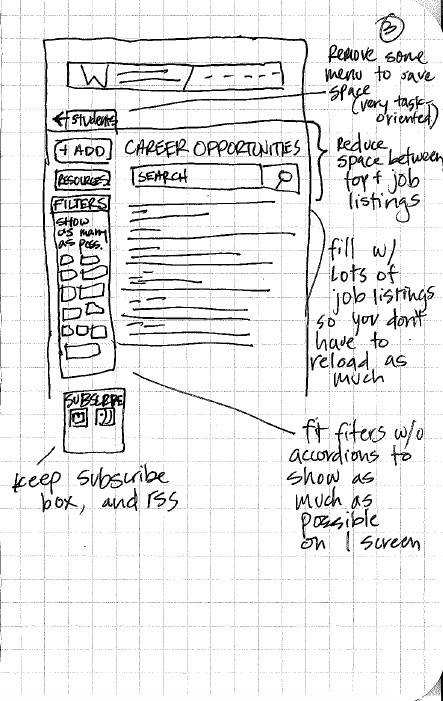 3
Remove some
menu to save
space
(very task-
oriented)
W
← students
+ ADD
CAREER OPPORTUNITIES
Reduce
space between
top + job
listings
RESOURCES
SEARCH
FILTERS
SHOW
as many
as poss.
fill w/
Lots of
job listings
so you don't
have to
reload as
much
SUBSCRIBE
fit filters w/o
accordions to
show as
much as
possible
on 1 screen
keep subscribe
box, and rss